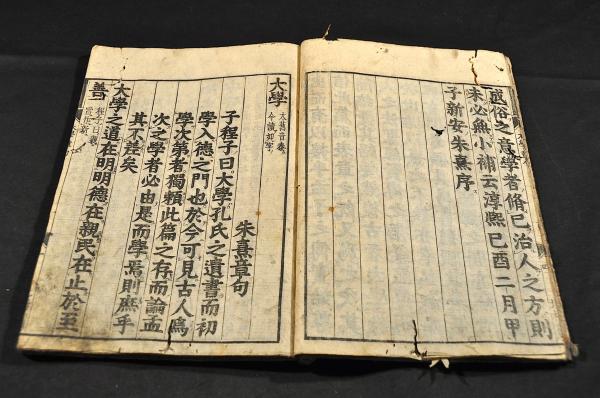 成俗之意學者脩已治人之方則
未必無小補云淳熙己酉二月甲
子新安朱熹序
大學 大舊音泰今讀如字
朱熹章句
子程子曰大學孔氏之遺書而初
學入德之門也於今可見古人爲
學次第者獨賴此篇之存而論孟
次之學者必由是而學焉則庶乎
其不差矣
大學之道在明明德在親民在止於至
善 程子曰親